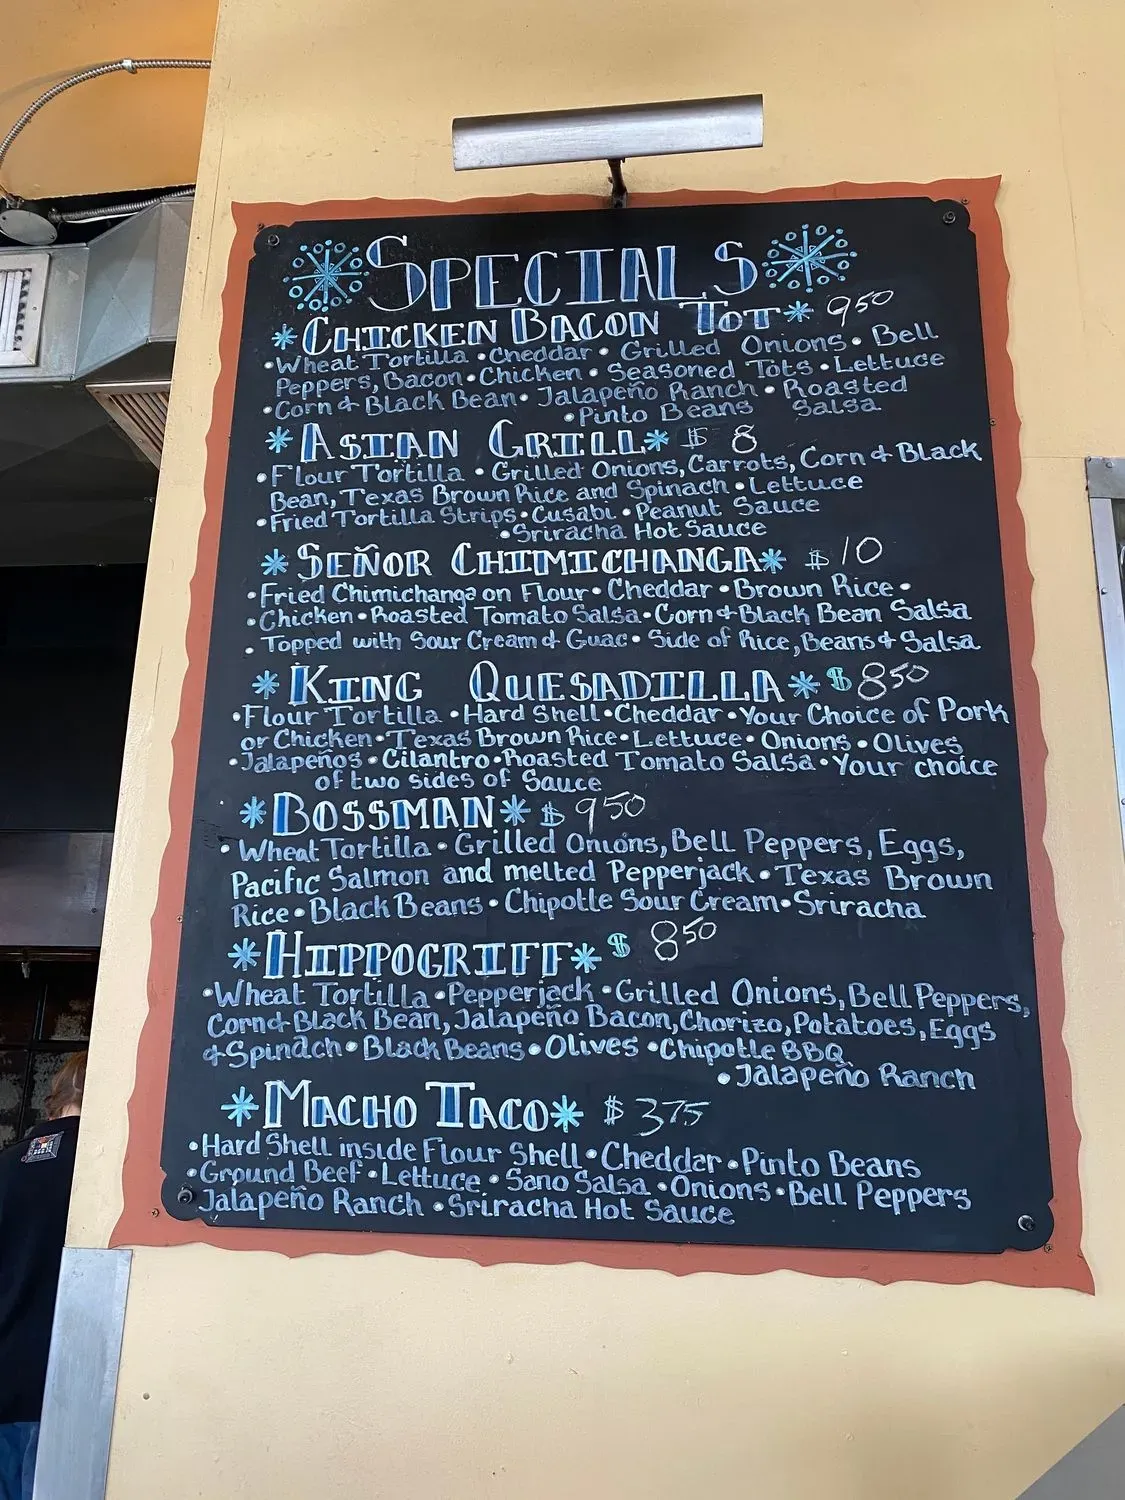 SPECIALS
*CHICKEN BACON TOT* 950
•Wheat Tortilla •Cheddar• Grilled Onions• Bell
Peppers, Bacon•Chicken• Seasoned Tots•Lettuce
•Corn & Black Bean• Jalapeño Ranch •Roasted
•Pinto Beans Salsa
*ASIAN GRILL* $ 8
•Flour Tortilla •Grilled Onions, Carrots, Corn & Black
Bean, Texas Brown Rice and Spinach•Lettuce
•Fried Tortilla Strips•Cusabi•Peanut Sauce
•Sriracha Hot Sauce
*SEÑOR CHIMICHANGA* $10
•Fried Chimichanga on Flour•Cheddar•Brown Rice•
•Chicken•Roasted Tomato Salsa•Corn & Black Bean Salsa
•Topped with Sour Cream & Guac• Side of Rice, Beans & Salsa
*KING QUESADILLA* $850
•Flour Tortilla •Hard Shell•Cheddar•Your Choice of Pork
or Chicken•Texas Brown Rice•Lettuce•Onions•Olives
•Jalapeños•Cilantro•Roasted Tomato Salsa•Your choice
of two sides of Sauce
*BOSSMAN* $ 950
•Wheat Tortilla•Grilled Onions, Bell Peppers, Eggs,
Pacific Salmon and melted Pepperjack•Texas Brown
Rice•Black Beans•Chipotle Sour Cream•Sriracha
*HIPPOGRIFF* $ 850
•Wheat Tortilla•Pepperjack•Grilled Onions, Bell Peppers,
Corn & Black Bean, Jalapeño Bacon, Chorizo, Potatoes, Eggs
& Spinach•Black Beans•Olives •Chipotle BBQ
•Jalapeño Ranch
*MACHO TACO* $ 375
•Hard Shell inside Flour Shell•Cheddar•Pinto Beans
•Ground Beef•Lettuce•Sano Salsa•Onions•Bell Peppers
Jalapeño Ranch •Sriracha Hot Sauce